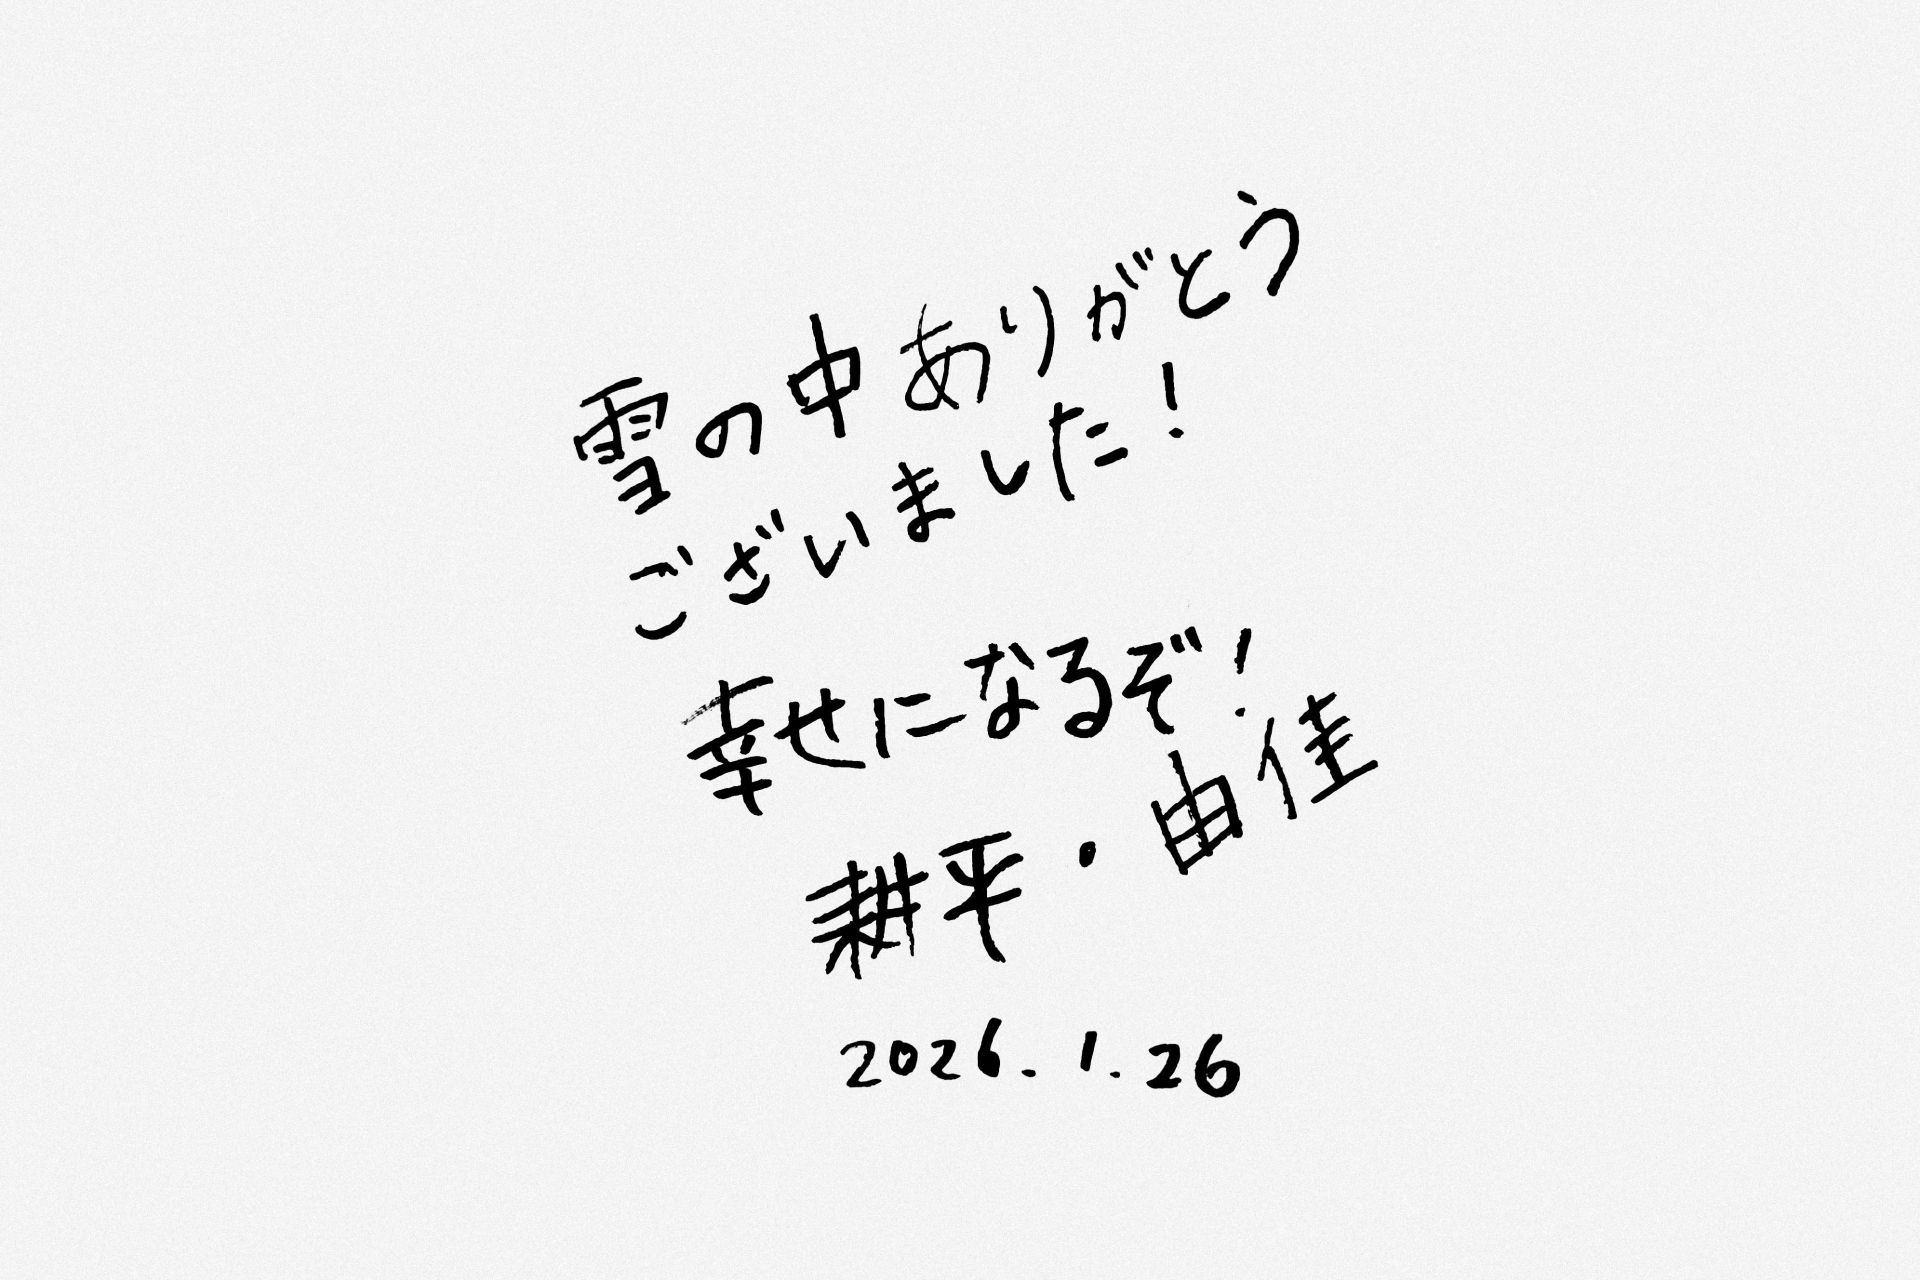 雪の中ありがとう
ございました!
幸せになるぞ!
耕平・由佳
2026.1.26